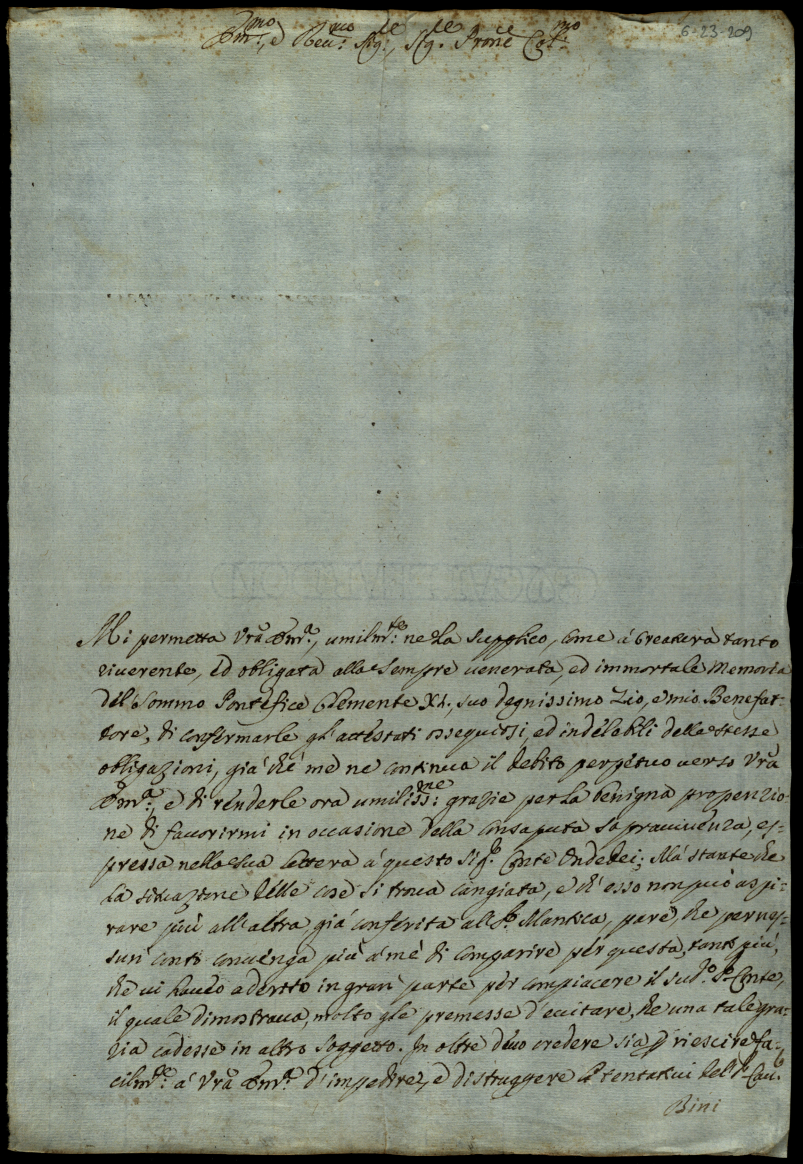 Em.mo, e Reu.mo Sig.re, Sig.re Prone Col.mo
6-23-209
Mi permetta Vra Em.a, umilm.te ne la supplico, come á Creatura tanto
riuerente, ed obligata alla sempre uenerata, ed immortale Memoria
del Sommo Pontefice Clemente XI., suo degnissimo Zio, e mio Benefat-
tore, di confermarle gl'attestati ossequiosi, ed indelebili delle stesse
obligazioni, giá ché me ne continua il debito perpetuo uerso Vra
Em.a, e di renderle ora umiliss.me grazie per la benigna propenzio-
ne di fauorirmi in occasione della consaputa soprauiuenza, es-
pressa nella sua lettera á questo Sig.r Conte Ondedei; Má stante che
la situazione delle cose si troua cangiata, e ch'esso non può aspi-
rare più all'altra giá conferita al S.r Mantica, pare, che per nes-
sun conto conuenga più á mé di comparire per questa, tanto più,
che ui haueo aderito in gran parte per compiacere il sud.o S.r Conte,
il quale dimostraua molto gle premesse d'euitare, che una tale gra-
zia cadesse in altro soggetto. In oltre deuo credere sia p riescire fa-
cilm.te á Vra Em.a d'impedire, e distruggere i tentatiui del S.r Cau.
Bini